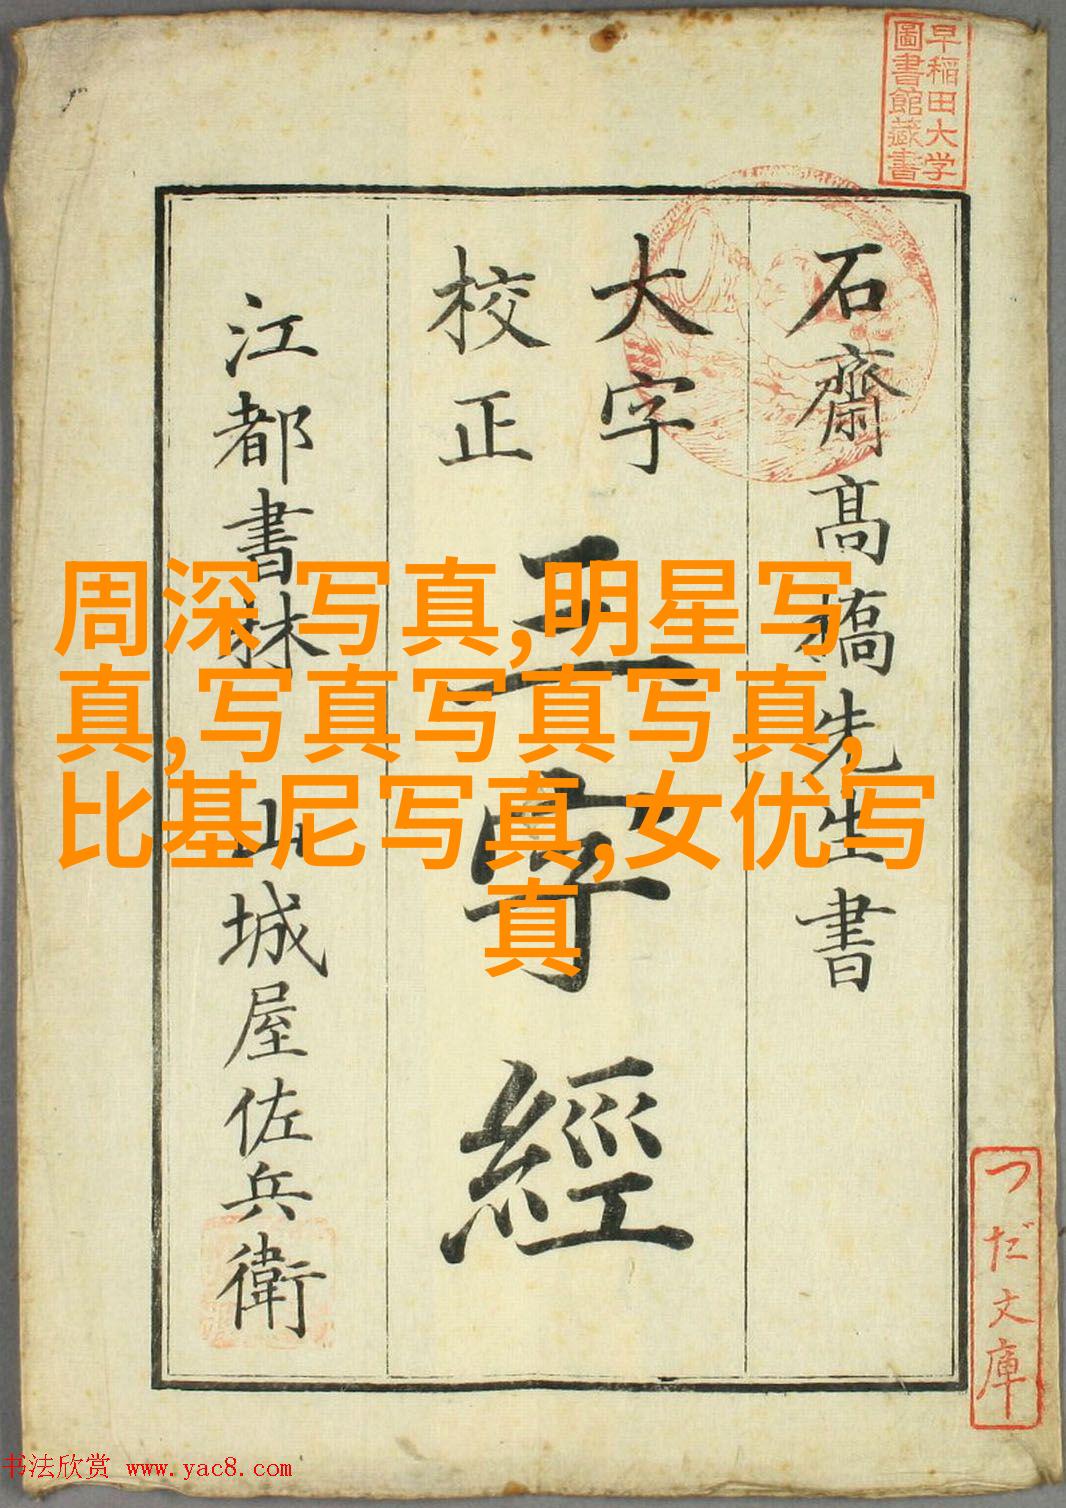 早稲田大学
圖書館藏書
石齋髙橋先生書
大字
校正
三字經
江都書林 山城屋佐兵衛
周深 写真,明星写
真,写真写真写真,
比基尼写真,女优写
真
つだ文庫
书法欣赏 www.yac8.com